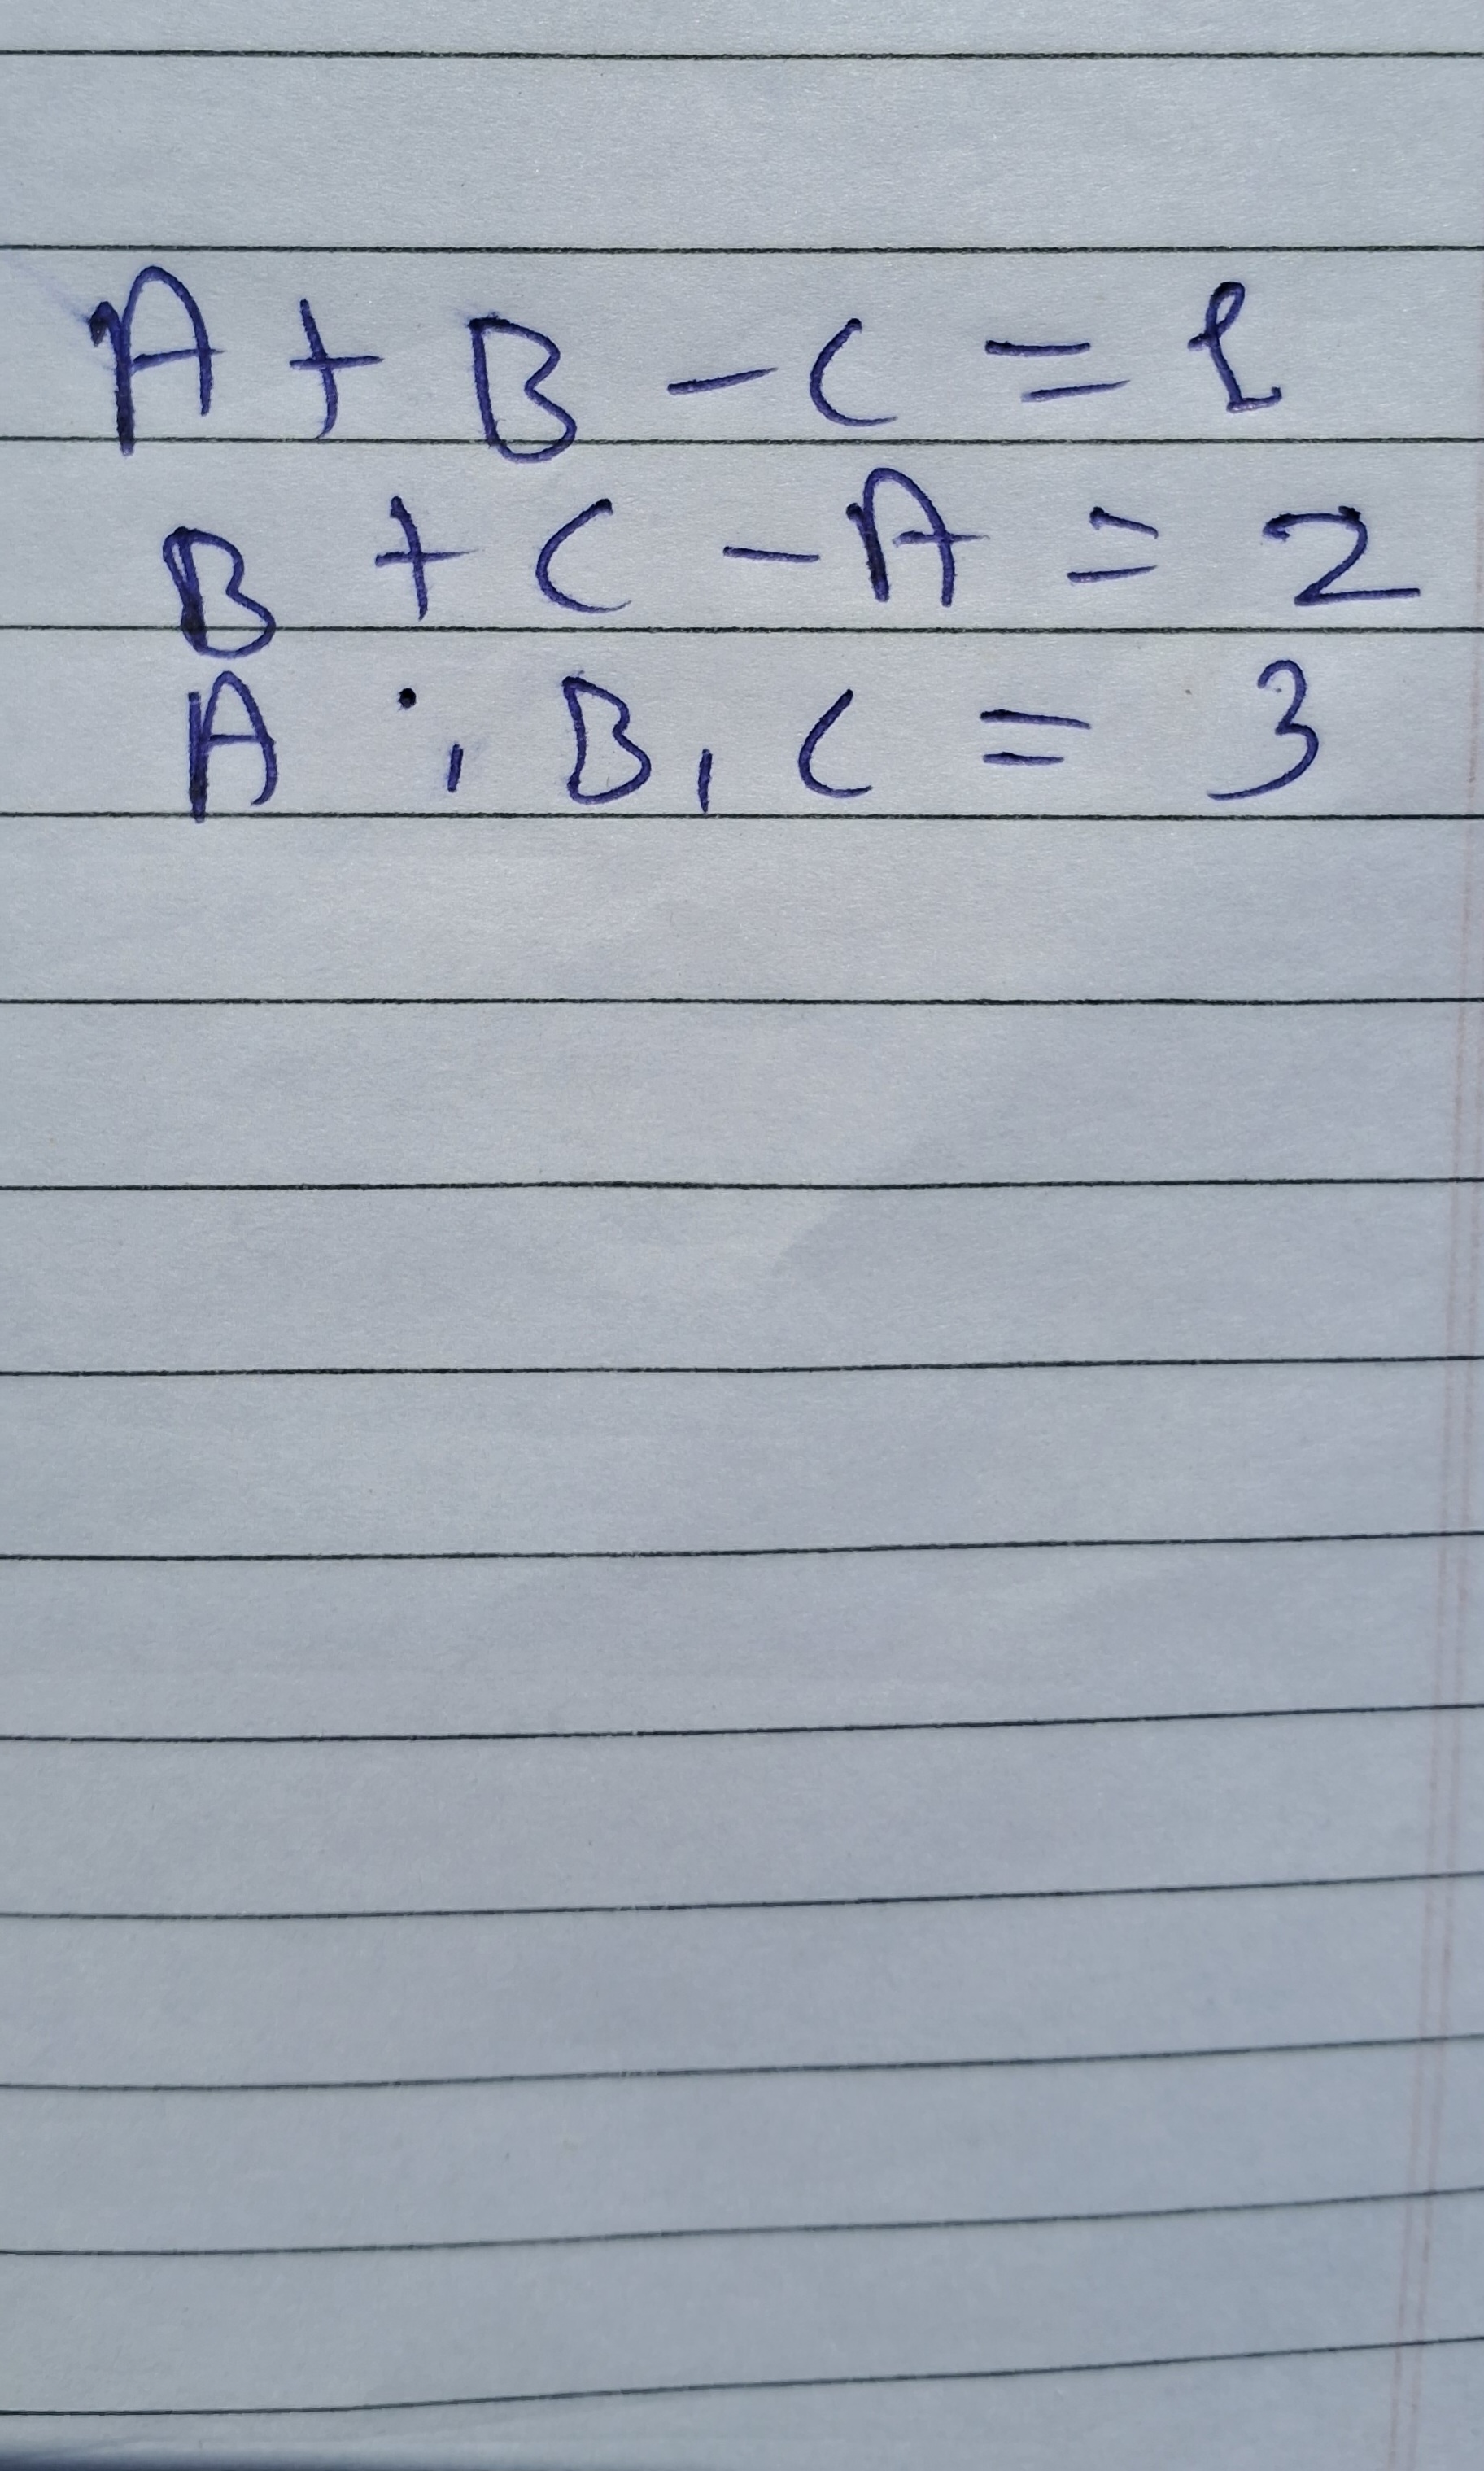 A + B - C = 1
B + C - A = 2
A ; B, C = 3